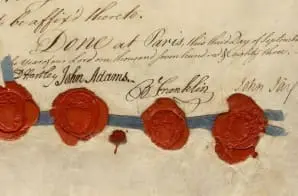 to be affix'd thereto.
Done at Paris, this third Day of September
our Lord one thousand seven hundred & eighty three.
D Hartley John Adams. B Franklin John Jay